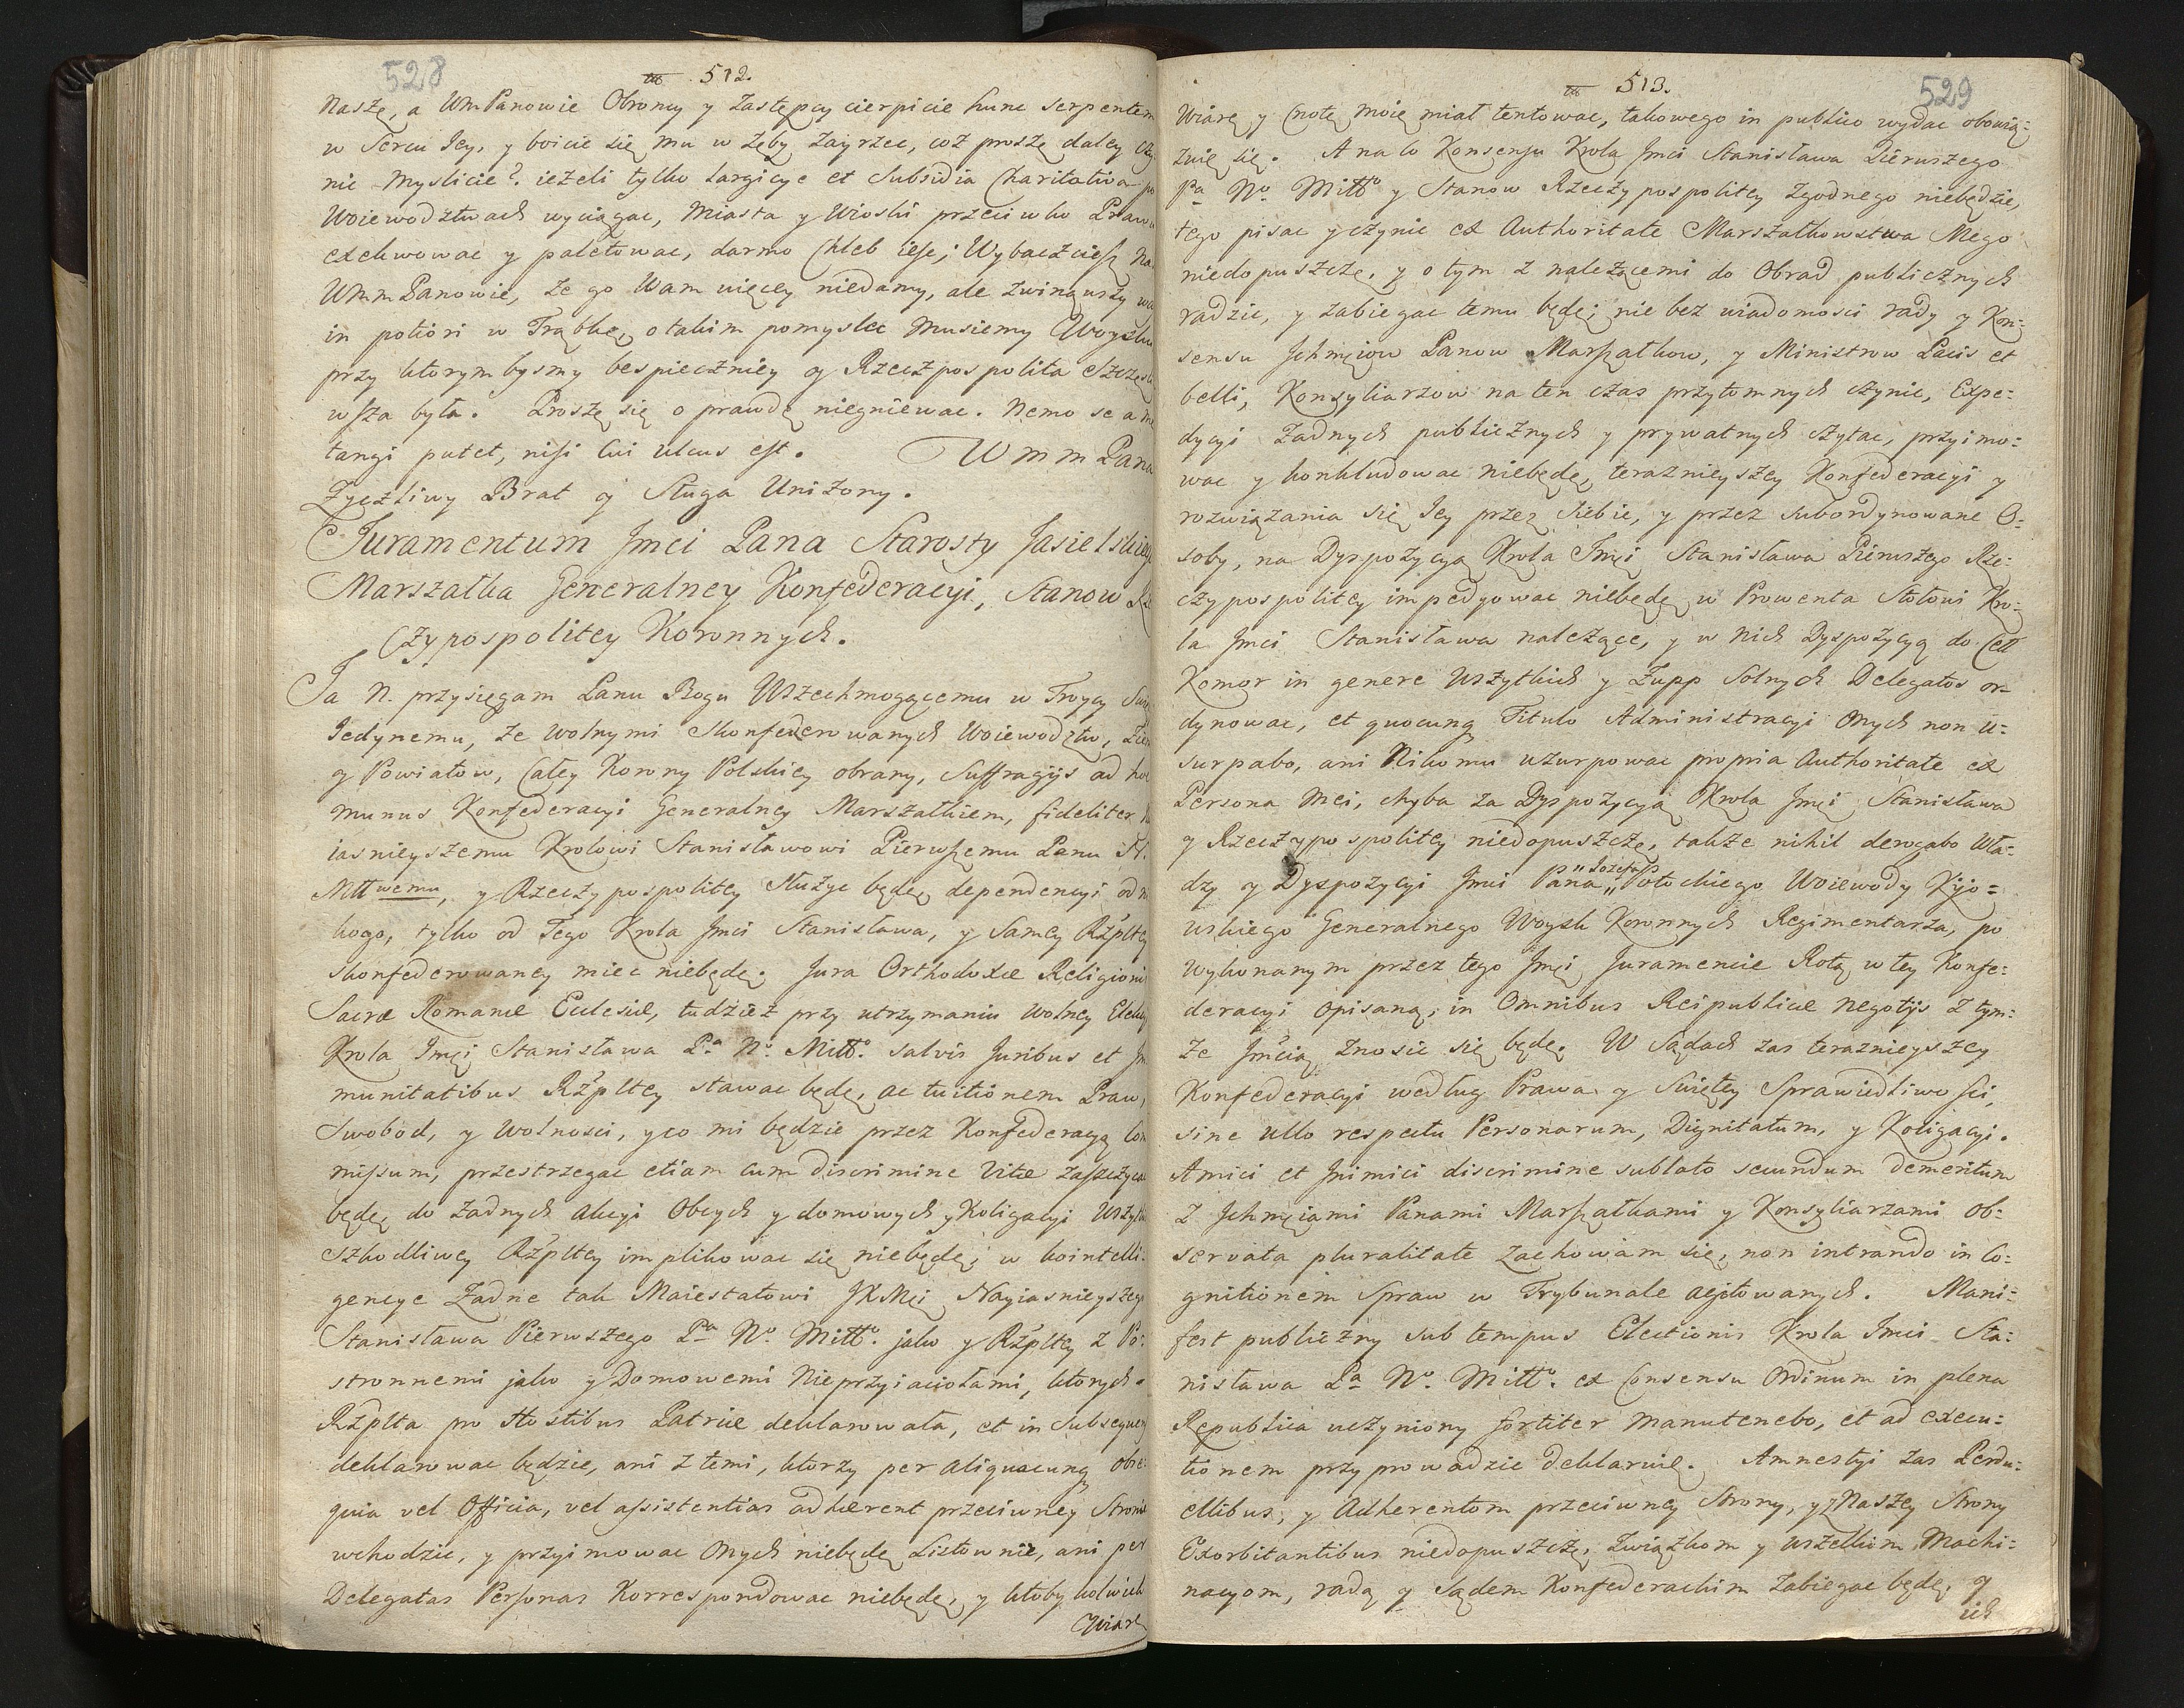 528
512.
Naszę, a WmPanowie Obroncy y Zastępcy cierpicie hunc serpentem
w Sercu Jey, y boicie się mu w Zęby Zayrzec, coż proszę daley czy
nic Myslicie? ieżeli tylko Largicye et Subsidia Charitativa po
Woiewodztwach wyciągac, Miasta y Wioski przeciwko Prawu
exekwowac y paletowac, darmo Chleb ieſc; Wybaczcieſz Na
WmmPanowie, Ze go Wam więcey niedamy, ale Zwinąwszy wa
in potiori w Trąbkę, o takim pomyslec Musiemy Woysku
przy ktorym bysmy bespieczniey y Rzeczpospolita Szczęsli
wſza była. Proszę się o prawdę niegniewac. Nemo se a me
tangi putet, niſi cui ulcus eſt. Wmm Pana
Zyczliwy Brat y Sługa Uniżony.
Juramentum Jmci Pana Starosty Jasielskiego
Marszałka Generalney Konfederacyi, Stanow Rze
Czypospolitey Koronnych.
Ja N. przysięgam Panu Bogu Wszechmogącemu w Troycy Swię
Jedynemu, że wolnymi Skonfederowanych Woiewodztw, Ziem
y Powiatow, Całey Korony Polskiey obrany, Suffragijs ad hoc
munus Konfederacyi Generalney Marszałkiem, fideliter N
iasnieyszemu Krolowi Stanisławowi Pierwſzemu Panu N.
Mttwemu, y Rzeczypospolitey Służyc będę, dependencyi od ni
kogo, tylko od Tego Krola Jmci Stanisława, y Samey Rżpltey
skonfederowaney miec niebędę. Jura Orthodoxæ Religionis
Sacræ Romanæ Ecclesiæ, tudzież przy utrzymaniu wolney Elekcyi
Krola Jmci Stanisława Pa. No. Mitto. salvis Juribus et Jm
munitatibus Rżpltey stawac będę, ac tuitionem Praw,
Swobod, y Wolnosci, y co mi będzie przez Konfederacyą Com
miſsum, przestrzegac etiam cum discrimine Vitæ Zaſzczycac
będę, do żadnych Akcyi Obcych y domowych, y Koligacyi Wszytk
Szkodliwey Rżpltey implikowac się niebędę; w kointelli-
gencye Żadne tak Maiestatowi JKMci Nayiasnieyszego
Stanisława Pierwszego Pa No. Mitto. jako y Rżpltey z Po:
stronnemi jako y Domowemi Nieprzyiaciołami, ktorych
Rżplta pro Hostibus Patriæ deklarowała, et in Subsequen
deklarowac będzie, ani z temi, ktorzy per aliquacunq obse-
quia vel Officia, vel aſsistentias adhærent przeciwney Stronie
wchodzic, y przyimowac Onych niebędę Listownie, ani per
Delegatas Perſonas Korrespondowac niebędę, y ktoby kolwiek
Wiarę
529
513.
Wiarę y Cnotę moię miał tentowac, takowego in publico wydac obowią:
zuię się. A na co Konsensu Krola Jmci Stanisława Pierwszego
Pa No. Mitto y Stanow Rzeczypospolitey Zgodnego niebędzie,
tego pisac y czynic ex Authoritate Marszałkowstwa Mego
niedopuszczę, y o tym z należącemi do Obrad publicznych
radzic, y zabiegac temu będę; nie bez wiadomosci rady y Kon:
sensu Jchmciow Panow Marſzałkow, y Ministrow Pacis et
belli, Konsyliarzow na ten czas przytomnych czynic, Expe:
dycyi Żadnych publicznych y prywatnych czytac, przyimo:
wac y konkludowac niebędę, teraznieyszey Konfederacyi y
rozwiązania się Jey przez Siebie, y przez subordynowane O:
soby, na Dyspozycyą Krola Jmci Stanisława Pierwszego Rze:
czypospolitey impedyowac niebędę, w Prowenta Stołowi Kro:
la Jmci Stanisława należące, y w nich Dyspozycyą do Ceł
Komor in genere Wszytkich y Żupp Solnych Delegatos or-
dynowac, et quocunq Titulo Administracyi Onych non u:
surpabo, ani Nikomu uzurpowac propria Authoritate ex
Persona Mei, chyba za Dyspozycyą Krola Jmci Stanisława
y Rzeczypospolitey niedopuszczę, także nihil derogabo Wła:
dzy y Dyspozycyi Jmci Pana „Jozefa„ Potockiego Woiewody Kijo:
wskiego Generalnego Woysk Koronnych Regimentarza, po
wykonanym przez tego Jmci Juramencie Rotą w tey Konfe:
deracyi opisaną, in Omnibus Reipublicæ Negotijs z tym:
że Jmcią Znosic się będę. W Sądach zas teraznieyszey
Konfederacyi według Prawa y Swiętey Sprawiedliwoſci,
sine ullo respectu Personarum, Dignitatum, y Koligacyi.
Amici et Jnimici discrimine sublato secundum dementum
z Jchmciami Panami Marſzałkami y Konsyliarzami Ob:
servata pluralitate Zachowam się, non intrando in Co:
gnitionem Spraw w Trybunale agitowanych. Mani:
fest publiczny sub tempus Electionis Krola Jmci Sta:
nisława Pa No. Mitto. ex Consensu Ordinum in plena
Republica uczyniony fortiter Manutenebo, et ad execu:
tionem przyprowadzic deklaruię. Amnestyi zas Perdu:
ellibus, y Adherentom przeciwney Strony, y z Naszey Strony
Exorbitantibus niedopuszczę, Związkom y wszelkim Machi:
nacyom, radą y Sądem Konfederackim Zabiegac będę, y
ich